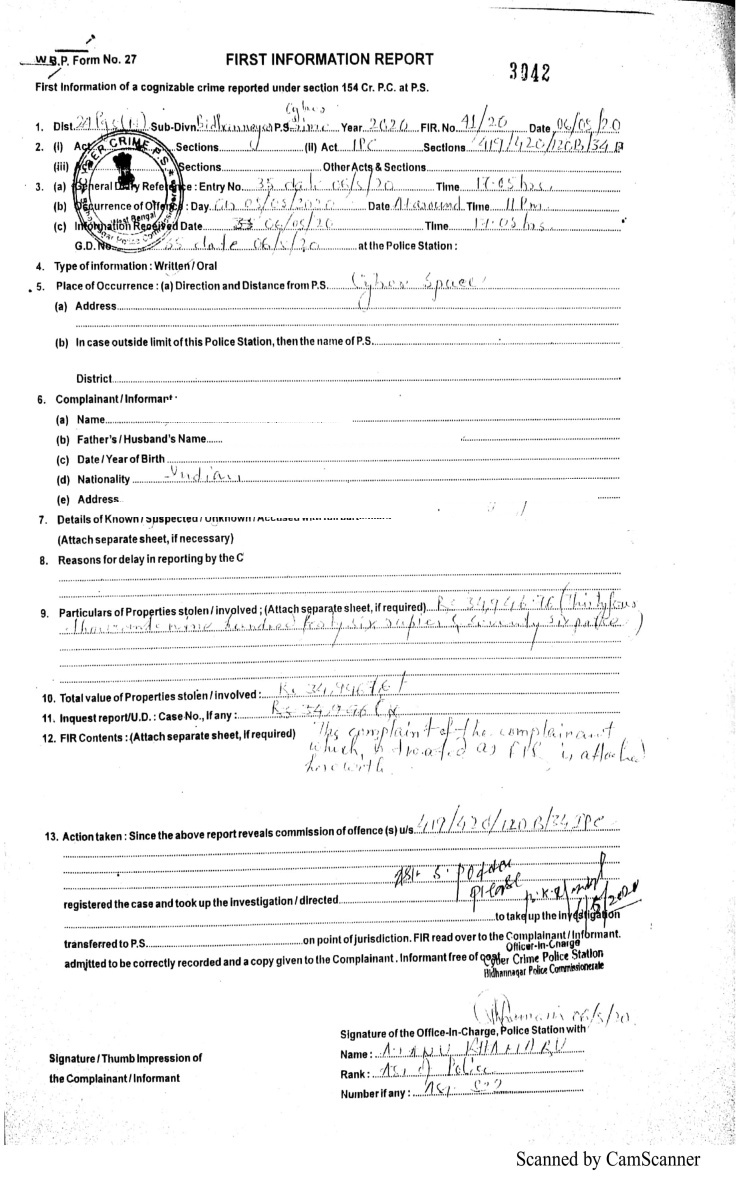 W.B.P. Form No. 27
FIRST INFORMATION REPORT
3042
First Information of a cognizable crime reported under section 154 Cr. P.C. at P.S.
Cyber
1. Dist. 24 Pgs (N) Sub-Divn. Bidhannagar P.S. Crime Year 2020 FIR. No. 41/20 Date 06/05/20
2. (i) Act Sections (II) Act IPC Sections 419/420/120B/34
(iii) Sections Other Acts & Sections
3. (a) General Diary Reference : Entry No. 35 date 06/5/20 Time 17.05 hrs
(b) Occurrence of Offence : Day On 05/05/2020 Date At around Time 11 Pm
(c) Information Received Date 06/05/20 Time 17.05 hrs
G.D. No. 35 date 06/5/20 at the Police Station :
CYBER CRIME P.S.
West Bengal
4. Type of information : Written / Oral
5. Place of Occurrence : (a) Direction and Distance from P.S. Cyber Space
(a) Address
(b) In case outside limit of this Police Station, then the name of P.S.
District
6. Complainant / Informant
(a) Name
(b) Father's / Husband's Name
(c) Date / Year of Birth
(d) Nationality Indian
(e) Address
7. Details of Known / Suspected / Unknown / Accused
(Attach separate sheet, if necessary)
8. Reasons for delay in reporting by the C
9. Particulars of Properties stolen / involved ; (Attach separate sheet, if required) Rs 34,946.76 (Thirty four
thousand nine hundred forty six rupies & seventy six paise)
10. Total value of Properties stolen / involved : Rs 34,946.76
11. Inquest report/U.D. : Case No., If any :
12. FIR Contents : (Attach separate sheet, if required) The complaint of the complainant
which is treated as FIR is attached
herewith
13. Action taken : Since the above report reveals commission of offence (s) u/s 419/420/120B/34 IPC
S. Poddar
Please
registered the case and took up the Investigation / directed
to take up the investigation
transferred to P.S. on point of jurisdiction. FIR read over to the Complainant / Informant.
Officer-in-Charge
admitted to be correctly recorded and a copy given to the Complainant. Informant free of cost.
Cyber Crime Police Station
Bidhannagar Police Commissionerate
06/5/20
Signature of the Office-In-Charge, Police Station with
Signature / Thumb Impression of
Name :
the Complainant / Informant
Rank : ASI of Police
Number if any : ASI
Scanned by CamScanner